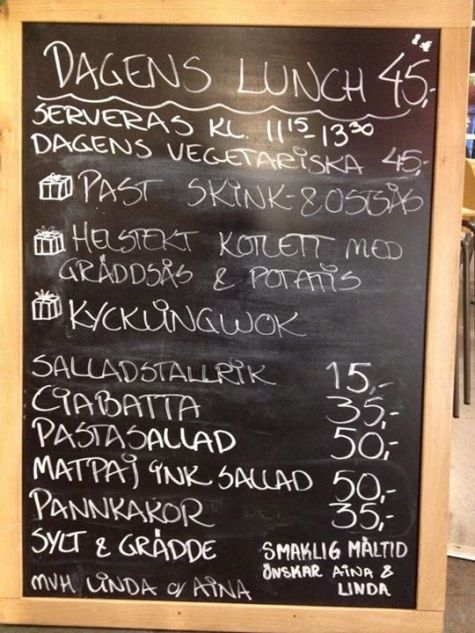 DAGENS LUNCH 45,-
SERVERAS KL. 11 15-13 30
DAGENS VEGETARISKA 45:-
PAST SKINK- & OSTSÅS
HELSTEKT KOTLETT MED
GRÄDDSÅS & POTATIS
KYCKLINGWOK
SALLADSTALLRIK 15,-
CIABATTA 35,-
PASTASALLAD 50,-
MATPAJ INK SALLAD 50,-
PANNKAKOR 35,-
SYLT & GRÄDDE
SMAKLIG MÅLTID
ÖNSKAR AINA &
LINDA
MVH LINDA o/ AINA